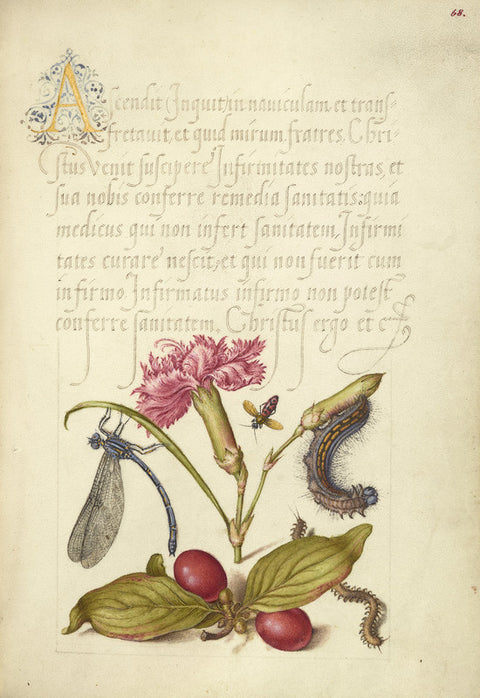 68.
Ascendit (Inquit) in naviculam, et trans-
fretavit, et quid mirum fratres. Chri-
stus venit suscipere Infirmitates nostras, et
sua nobis conferre remedia sanitatis: quia
medicus qui non infert sanitatem, Infirmi
tates curare nescit, et qui non fuerit cum
infirmo, Infirmatus infirmo non potest
conferre sanitatem. Christus ergo et c